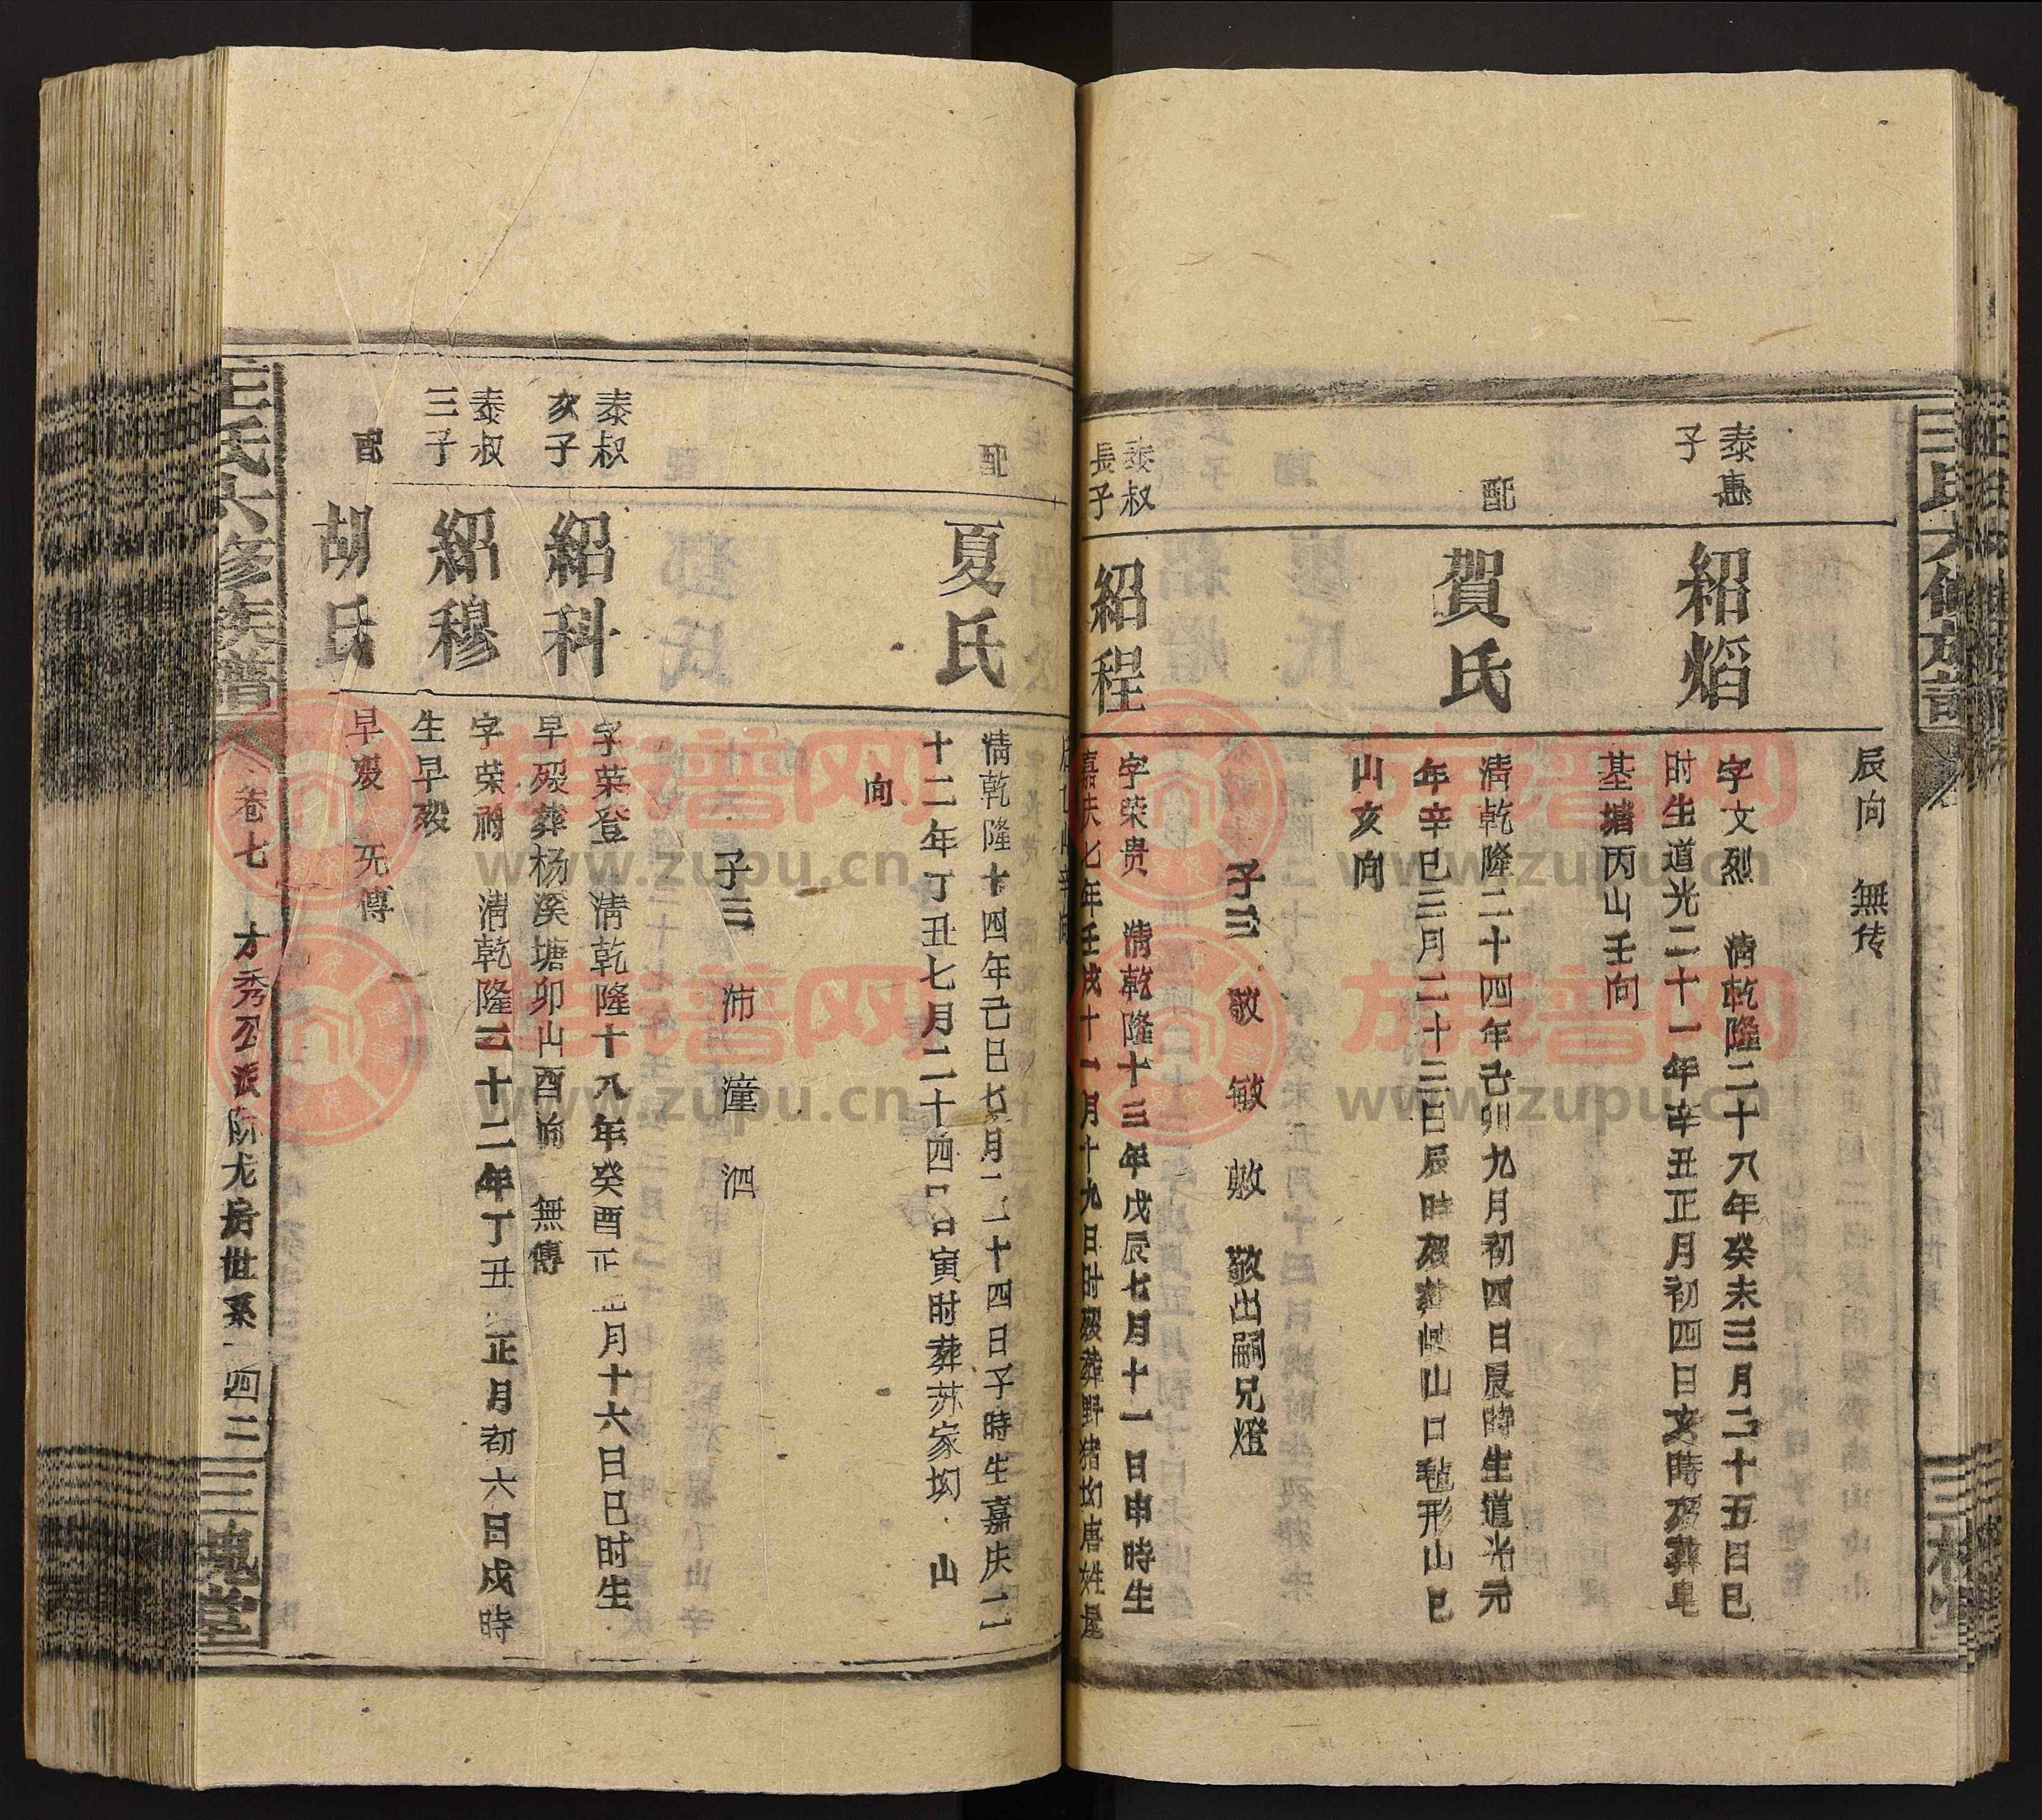 辰向　無传
泰惠
子
紹熖
字文烈　清乾隆二十八年癸未三月二十五日巳
时生道光二十一年辛丑正月初四日亥時殁葬皂
基塘丙山壬向
配
賀氏
清乾隆二十四年己卯九月初四日辰時生道光元
年辛巳三月二十三日辰時殁
山口
形山巳
山亥向
子三　敬　敏　敷　敬出嗣兄燈
泰叔
長子
紹程
字荣贵　清乾隆十三年戊辰七月十一日申時生
嘉庆七年壬戌十一月十九日时殁葬野猪坳唐姓屋
配
夏氏
清乾隆十四年己巳七月二十四日子時生嘉庆二
十二年丁丑七月二十四日寅时葬苏家坳　山
向
子三　沛　潼　泗
泰叔
次子
紹科
字荣登　清乾隆十八年癸酉正月十六日巳时生
早殁葬杨溪塘卯山酉向　無傳
泰叔
三子
紹穆
字荣　清乾隆二十二年丁丑正月初六日戌時
生早殁
配
胡氏
早殁　无傳
王氏六修族譜
卷七
才秀公派
房世系
四二
三槐堂
族谱网
www.zupu.cn
族谱网
www.zupu.cn
族谱网
www.zupu.cn
族谱网
www.zupu.cn